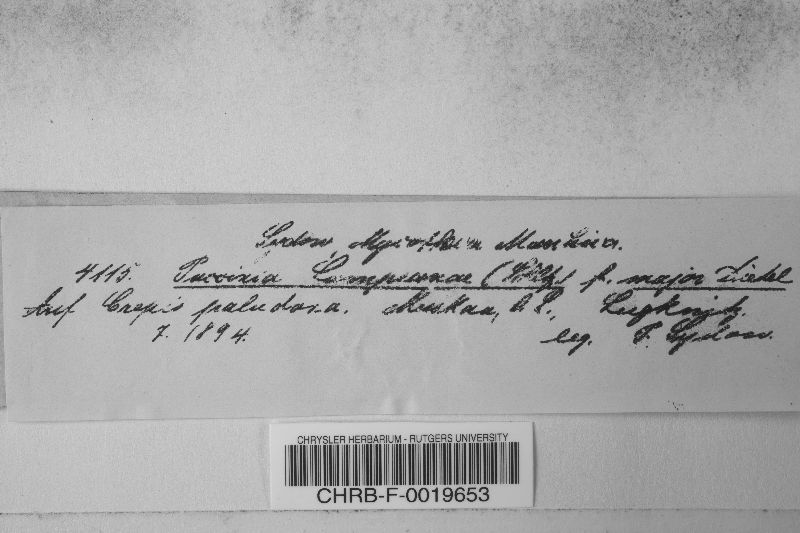 Sydow, Mycotheca Marchica.
4115. Puccinia Compositae (Schlt.) f. major Dietel
Auf Crepis paludosa. Muskau, O. L., Lugknitz.
7. 1894. leg. P. Sydow.
CHRYSLER HERBARIUM - RUTGERS UNIVERSITY
CHRB-F-0019653